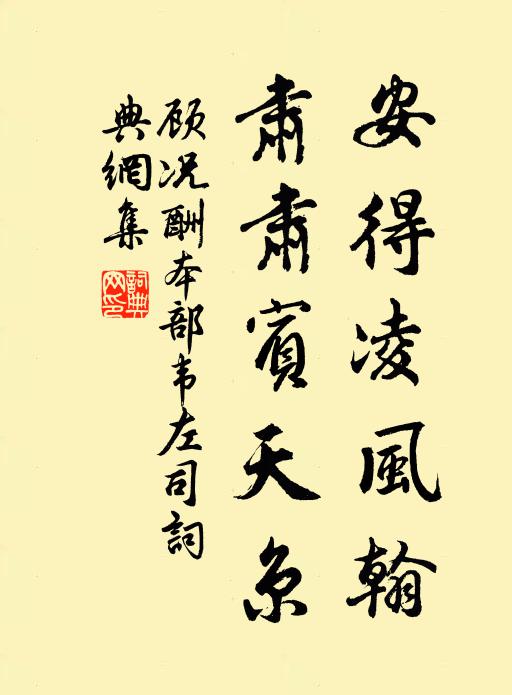 安得凌風翰
肅肅賓天京
顾况酬本部韦左司詞
典網集
詞典
网印